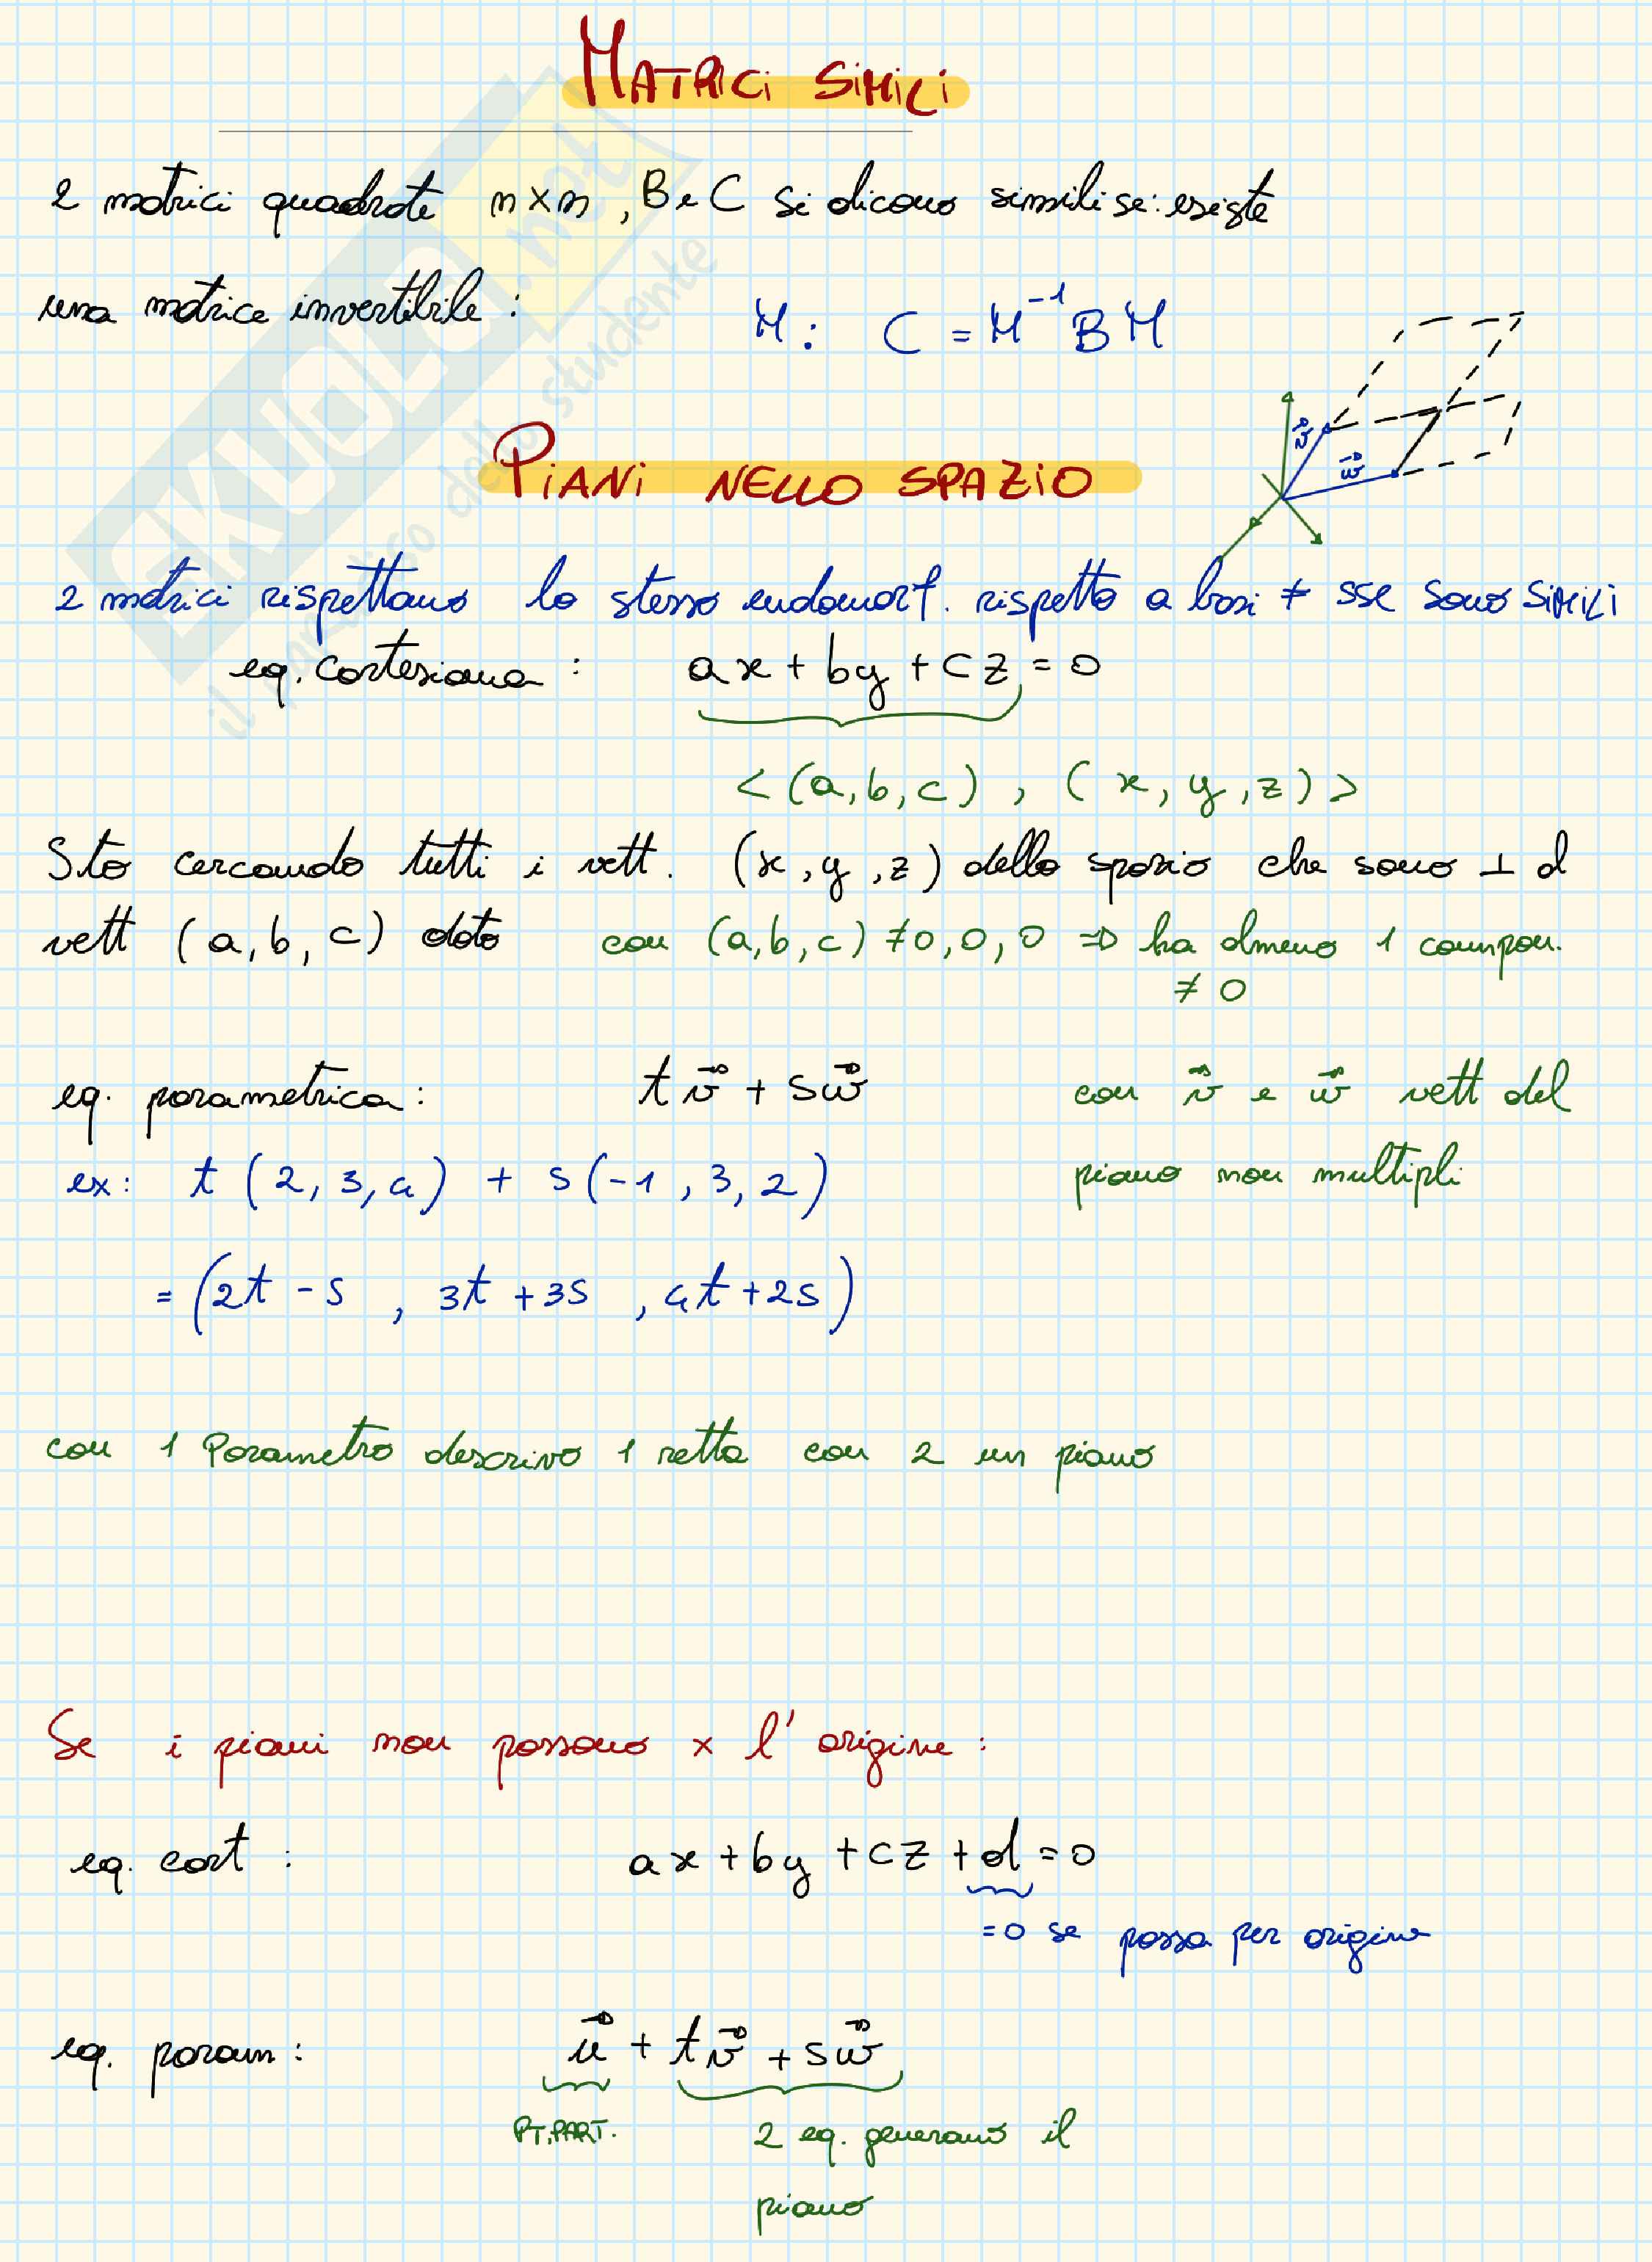 MATRICI SIMILI
2 matrici quadrate n×n, B e C si dicono simili se: esiste
una matrice invertibile: M: C = M⁻¹ B M
v⃗
w⃗
PIANI NELLO SPAZIO
2 matrici rispettano lo stesso endomorf. rispetto a basi ≠ sse sono SIMILI
eq. cartesiana: ax + by + cz = 0
<(a,b,c), (x,y,z)>
Sto cercando tutti i vett. (x,y,z) dello spazio che sono ⊥ al
vett (a,b,c) dato con (a,b,c) ≠ 0,0,0 => ha almeno 1 compon.
≠ 0
eq. parametrica: t v⃗ + s w⃗ con v⃗ e w⃗ vett del
piano non multipli
ex: t (2, 3, 4) + s (-1, 3, 2)
= (2t - s, 3t + 3s, 4t + 2s)
con 1 Parametro descrivo 1 retta con 2 un piano
Se i piani non passano x l'origine:
eq. cart: ax + by + cz + d = 0
= 0 se passa per origine
eq. param: u⃗ + t v⃗ + s w⃗
PT. PART. 2 eq. generano il
piano
SKUOLA.net
il paradiso dello studente